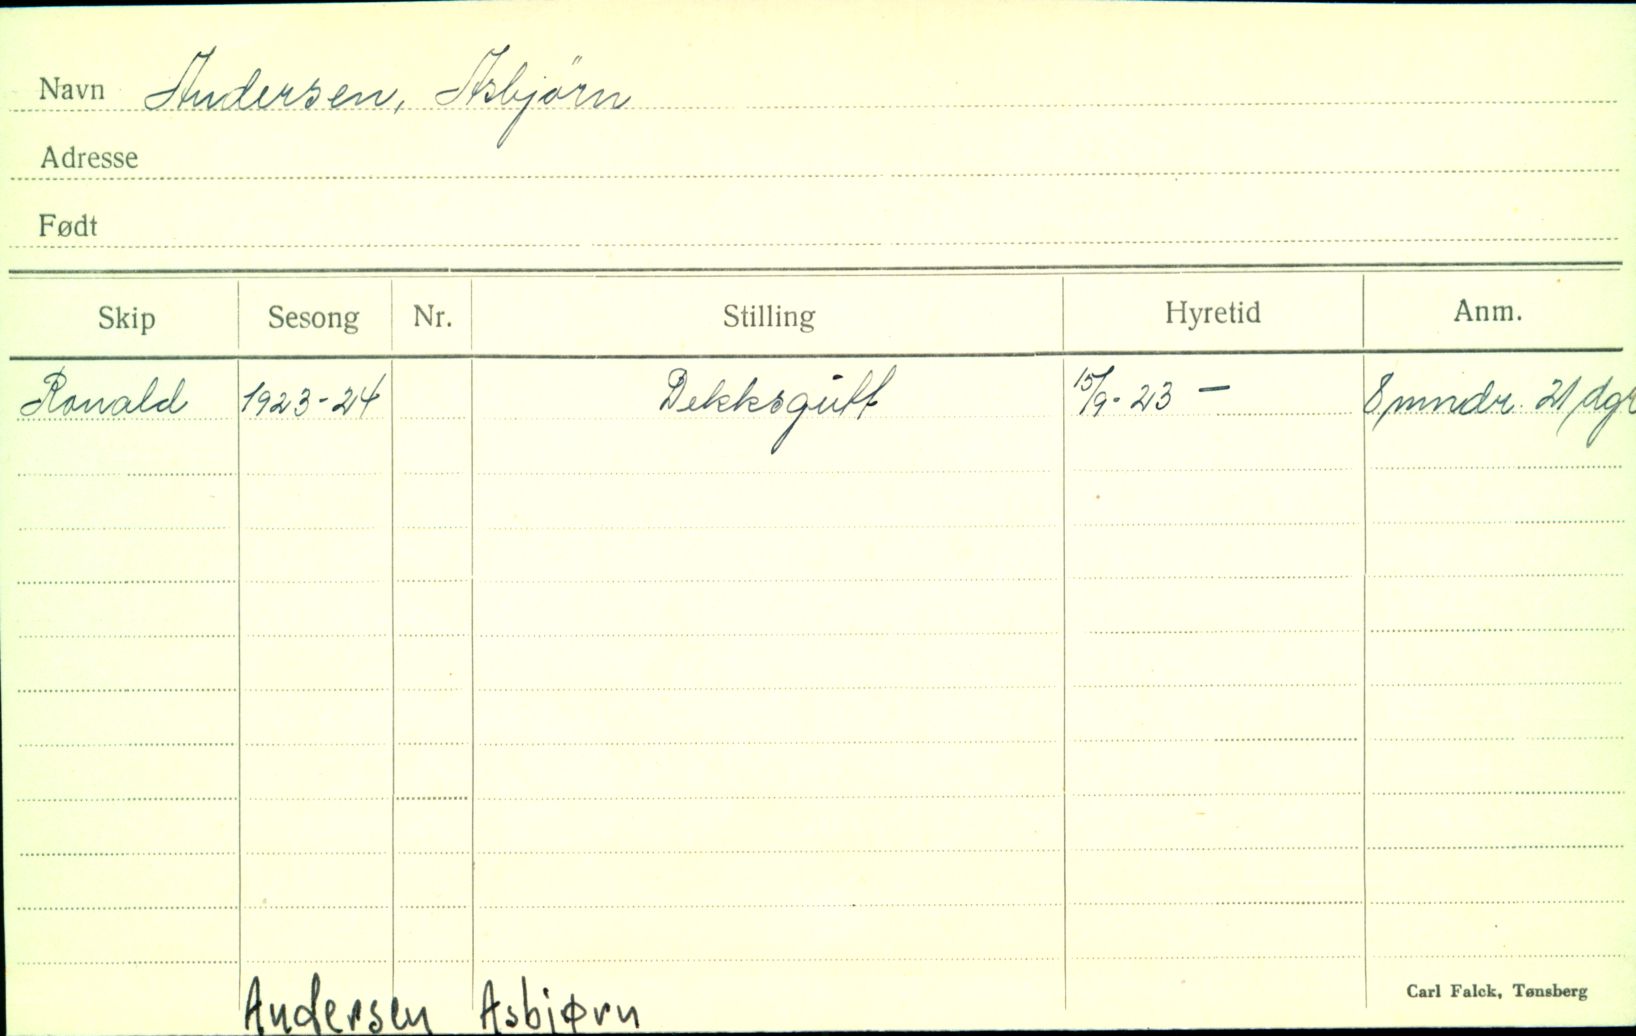 Navn Andersen, Asbjörn
Adresse
Født
Skip Sesong Nr. Stilling Hyretid Anm.
Ronald 1923-24 Dekksgutt 15/9-23 — 8 mndr. 21 dgr
Carl Falck, Tønsberg
Andersen Asbjørn